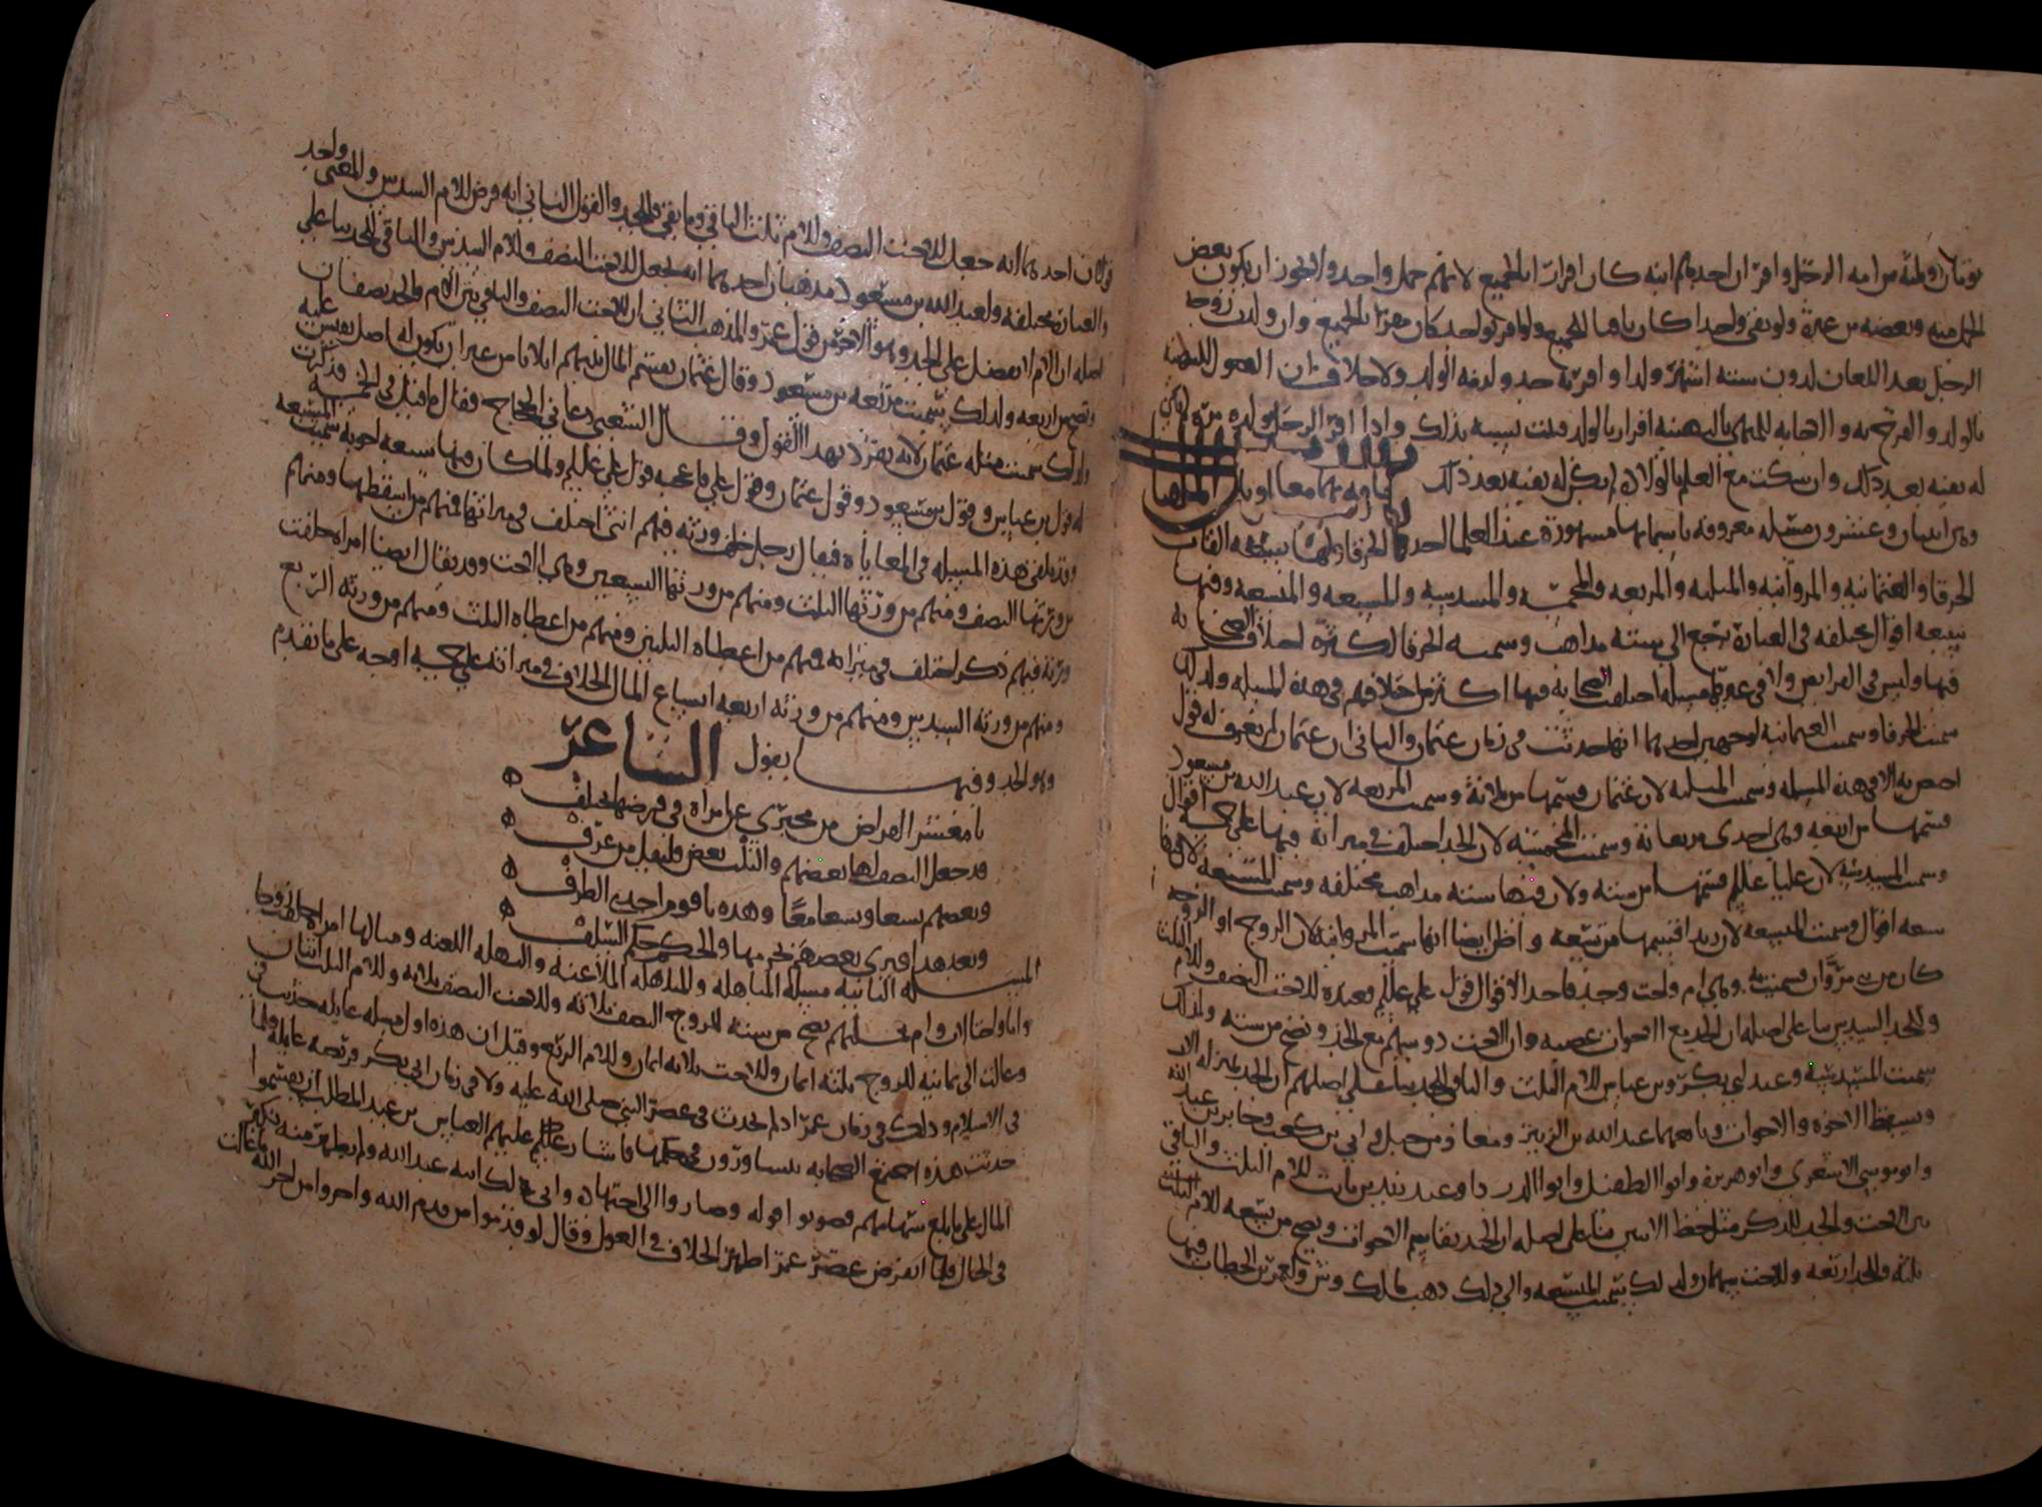 تومان او ثلثه من امه الرجل واقر ان احدهم ابنه كان اقرارا بالجميع لانهم حمل واحد ولا يجوز ان يكون بعض
الحمل منه وبعضه من غيره ولو نفى واحدا كان نافيا للجميع ولو اقر بواحد كان مقرا بالجميع وان ولدت زوجه
الرجل بعد اللعان لدون سته اشهر ولدا واقر به حد ولحقه الولد ولا خلاف ان
بالولد والفرح به والاجابه للمهني بالتهنئه اقرار بالولد وثبت نسبه بذلك واذا اقر الرجل بولده مره لم يكن
له نفيه بعد ذلك وان سكت مع العلم بالولاد لم يكن له نفيه بعد ذلك
وهي اثنتان وعشرون مسئله معروفه باسمايها مشهورة عند العلما احدها الخرقا ولها تسعه القاب
الخرقا والعثمانيه والمروانيه والمثلثه والمربعه والمخمسه والمسدسه والمسبعه والمتسعه وفيها
تسعه اقوال مختلفه في العبارة ترجع الى سته مذاهب وسميت الخرقا لكثرة اختلاف الصحابه
فيها وليس في الفرايض ولا في غيرها مسئله اختلفت الصحابه فيها اكثر من اختلافهم في هذه المسئله ولذلك
سميت الخرقا وسميت العثمانيه لوجهين احدهما انها حدثت في زمان عثمان والثاني ان عثمان لم يعرف له قول
اختص به الا في هذه المسئله وسميت المثلثه لان عثمان قسمها من ثلاثة وسميت المربعه لان عبد الله بن مسعود
قسمها من اربعه وهي احدى مربعاته وسميت المخمسه لان الجد اختلف في ميراثه فيها على خمسه اقوال
وسميت المسدسه لان عليا عليلم قسمها من سته ولان فيها سته مذاهب مختلفه وسميت المتسعه لان فيها
تسعه اقوال وسميت المتسعه لان زيدا قسمها من تسعه واظن ايضا انها سميت المروانيه لان الزوج او الزوجه
كان من بني مروان فسميت به وهي ام واخت وجد فاحد الاقوال قول علي عليلم وعنده للاخت النصف وللام الثلث
وللجد السدس بنا على اصله ان الجد مع الاخوات عصبه وان الاخت ذو سهم مع الجد وتصح من سته ولذلك
سميت المسدسه وعند ابي بكر وبن عباس للام الثلث والباقي للجد بنا على اصلهم ان الجد بمنزله الاب
ويسقط الاخوه والاخوات وتابعهما عبد الله بن الزبير ومعاذ بن جبل وابي بن كعب وجابر بن عبد الله
وابو موسى الاشعري وابو هريرة وابوا الطفيل وابوا الدرداء وعند زيد بن ثابت للام الثلث والباقي
بين الاخت والجد للذكر مثل حظ الانثيين بنا على اصله ان الجد يقاسم الاخوات وتصح من تسعه للام الثلث
ثلثه وللجد اربعه وللاخت سهمان ولذلك سميت المتسعه والى ذلك ذهب مالك وش ولعمر بن الخطاب فيها
قولان احدهما انه جعل للاخت النصف وللام ثلث الباقي وما بقي فللجد والقول الثاني انه فرض للام السدس والمعنى واحد
والعبارة مختلفه ولعبد الله بن مسعود مذهبان احدهما انه يجعل للاخت النصف وللام السدس والباقي للجد بنا على
اصله ان الام لا تفضل على الجد وهو الاخر من قول عمر والمذهب الثاني ان للاخت النصف والباقي بين الام والجد نصفان
وتصح من اربعه ولذلك سميت مربعه بن مسعود وقال عثمان يقسم المال بينهم اثلاثا من غير ان يكون له اصل يقيس عليه
ولذلك سميت مثلثه عثمان لانه تفرد بهذا القول وقال الشعبي دعاني الحجاج وقال ما قيل في الخمسه فذكرت
له قول بن عباس وقول بن مسعود وقول عثمان وقول علي فاعجبه قول علي عليلم ولما كان فيها تسعه اجوبه سميت المتسعه
وقد تلقى هذه المسئله في المعاياه فيقال رجل خلف ورثه فيهم انثى اختلف في ميراثها فمنهم من اسقطها ومنهم
من ورثها النصف ومنهم من ورثها الثلث ومنهم من ورثها التسعين وهي الاخت وقد يقال ايضا امراه خلفت
ورثة فيهم ذكر اختلف في ميراثه فمنهم من اعطاه الثلثين ومنهم من اعطاه الثلث ومنهم من ورثه الربع
ومنهم من ورثه السدس ومنهم من ورثه اربعه اتساع المال الخلاف في ميراثه على خمسه اوجه على ما تقدم
وهو الجد وفيها يقول الشاعر
يا معشر الفراض من مخبري عن امراه في فرضها يختلف
قد جعل النصف لها بعضهم والثلث بعض وليقل من عرف
وبعضهم تسعا وتسعا معا وهذه يا قوم احدى الطرف
وبعد هذا فيرى بعضهم تحريمها والحكم حكم السلف
المسئله الثانيه مسئله المباهله والمباهله الملاعنه والبهله اللعنه ومثالها امراه خلفت زوجا
واما واختا لاب وام مسئلتهم تصح من سته للزوج النصف ثلاثه وللاخت النصف ثلاثه وللام الثلث اثنان
وعالت الى ثمانيه للزوج ثلثه اثمان وللاخت ثلاثه اثمان وللام الربع وقيل ان هذه اول مسئله عايله حدثت في
في الاسلام وذلك في زمان عمر اذ لم تحدث في عصر النبي صلى الله عليه ولا في زمان ابي بكر فريضه عايله ولما
حدثت هذه اجتمع الصحابه يتشاورون في حكمها فاشار عليهم العباس بن عبد المطلب ان يقسموا
المال على ما بلغ سهامهم فصوبوا قوله وصاروا الى اجتهاده وابى ذلك ابنه عبد الله ولم يظهر منه نكير
في الحال فلما انقرض عصر عمر اظهر الخلاف في العول وقال لو قدموا من قدم الله واخروا من اخر الله ما عالت